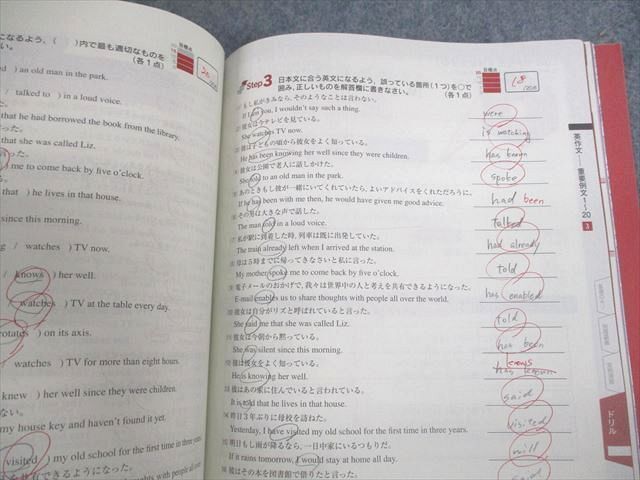 になるよう,( )内で最も適切なものを
い。 (各1点)
目標点
) an old man in the park.
/ talked to ) in a loud voice.
that he had borrowed the book from the library.
that she was called Liz.
) me to come back by five o'clock.
that ) he lives in that house.
since this morning.
/ watches ) TV now.
/ knows ) her well.
/ watches ) TV at the table every day.
rotates ) on its axis.
watches ) TV for more than eight hours.
knew ) her well since they were children.
my house key and haven't found it yet.
visited ) my old school for the first time in three years.
Step 3 日本文に合う英文になるよう,誤っている箇所(1つ)を○で
囲み,正しいものを解答欄に書きなさい。 (各1点)
目標点
18
もし私がきみなら,そのようなことは言わない。
If I am you, I wouldn't say such a thing.
were
彼女は今テレビを見ている。
She watches TV now.
is watching
彼は子どもの頃から彼女をよく知っている。
He has been knowing her well since they were children.
has known
彼女は公園で老人に話しかけた。
She told to an old man in the park.
spoke
あのときもし彼が一緒にいてくれていたら,よいアドバイスをくれただろうに。
If he has been with me then, he would have given me good advice.
had been
その男は大きな声で話した。
The man told in a loud voice.
talked
私が駅に到着した時,列車は既に出発していた。
The train already left when I arrived at the station.
had already
母は5時までに帰ってきなさいと私に言った。
My mother spoke me to come back by five o'clock.
told
電子メールのおかげで,我々は世界中の人と考えを共有できるようになった。
E-mail enable us to share thoughts with people all over the world.
has enabled
彼女は自分がリズと呼ばれていると言った。
She said me that she was called Liz.
told
彼女は今朝から黙っている。
She was silent since this morning.
has been
彼は彼女をよく知っている。
He is knowing her well.
knows
彼はあの家に住んでいると言われている。
It is told that he lives in that house.
said
昨日3年ぶりに母校を訪ねた。
Yesterday, I have visited my old school for the first time in three years.
visited
明日もし雨が降るなら,一日中家にいるつもりだ。
If it rains tomorrow, I would stay at home all day.
will
彼はその本を図書館で借りたと言った。
英作文 重要例文1~20
3
ドリル